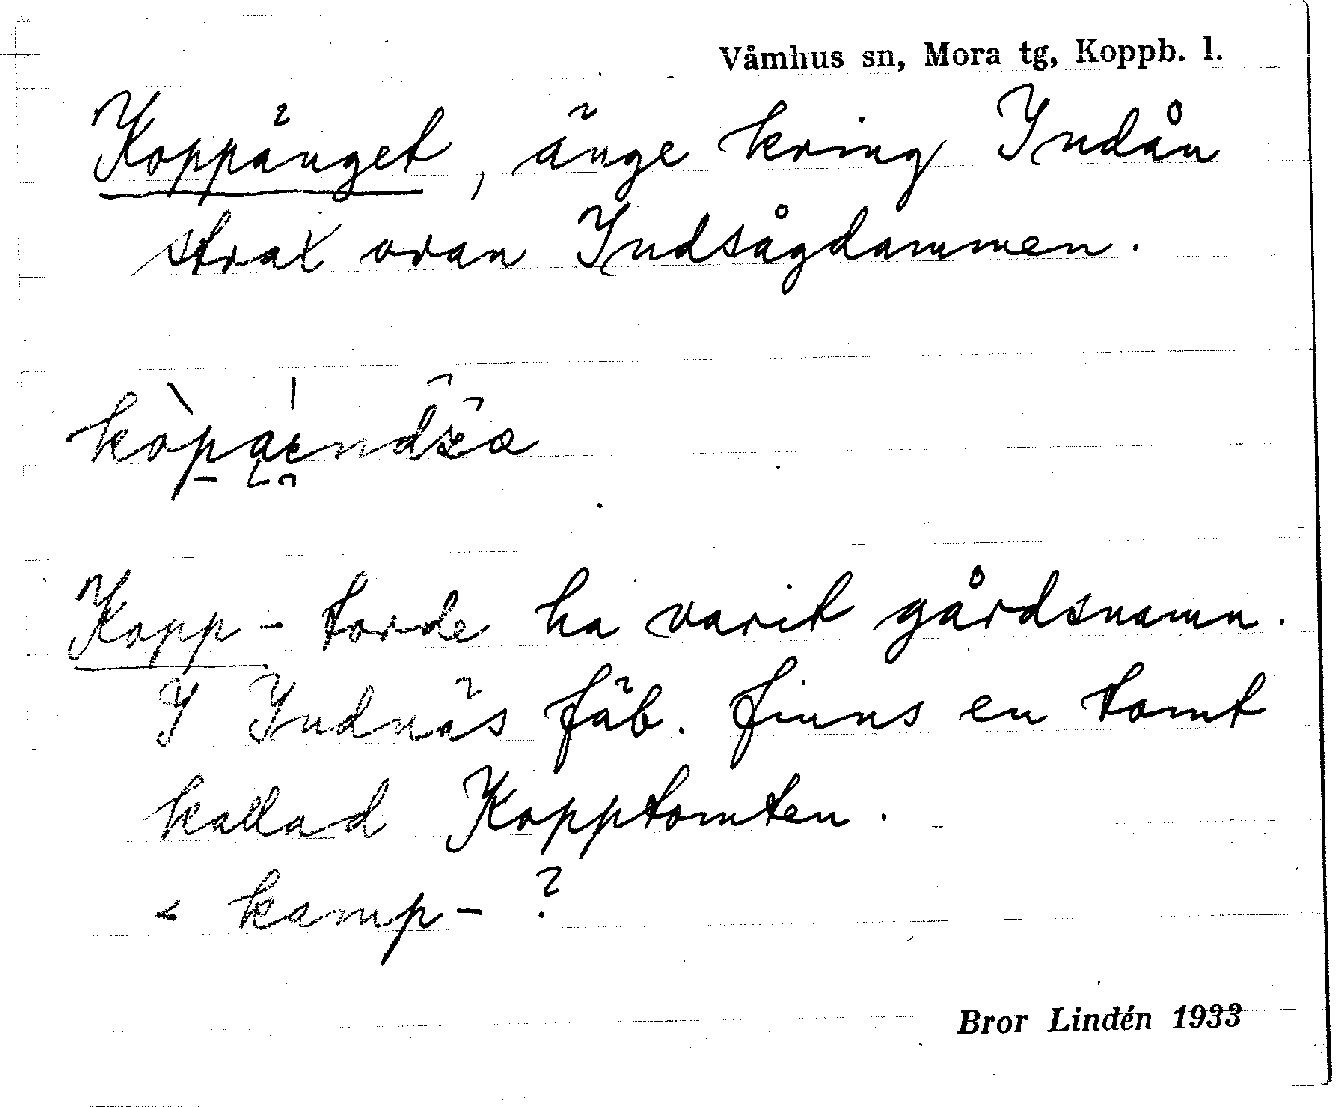 Våmhus sn, Mora tg, Koppb. l.
Koppänget, änge kring Indån
strax ovan Indsågdammen.
Kopp- torde ha varit gårdsnamn.
I Indnäs fäb. finns en tomt
kallad Kopptomten.
< kamp- ?
Bror Lindén 1933